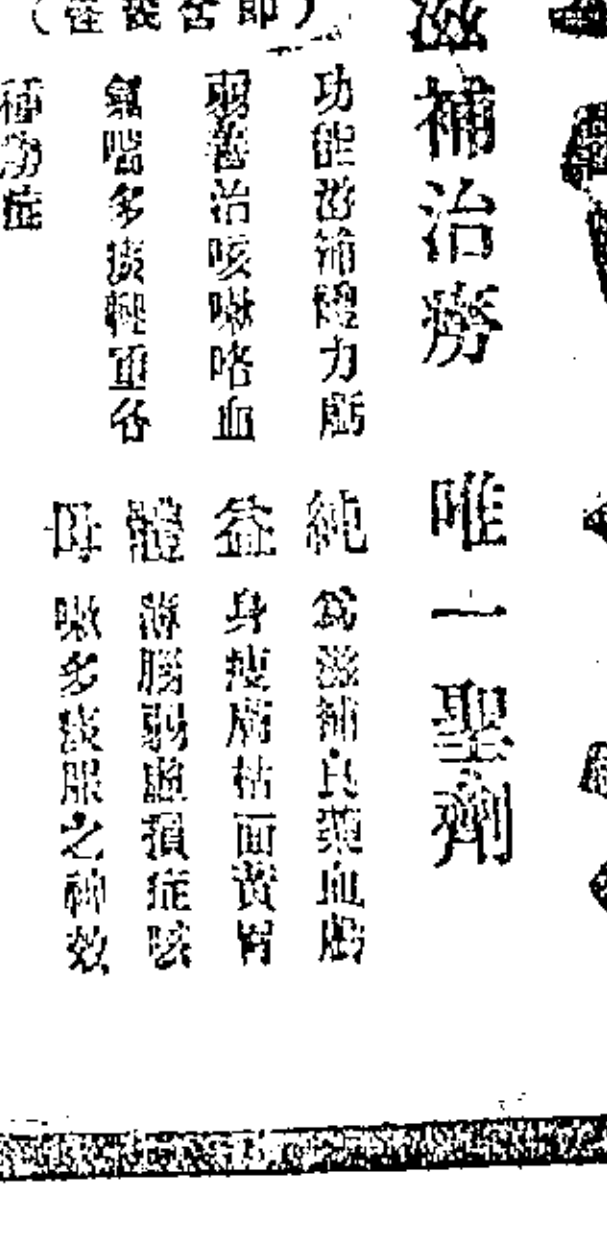 滋補治癆 唯一聖劑
功能滋補體力虧
弱善治咳嗽咯血
氣喘多痰輕重各
種癆症
純益體母
為滋補良藥血虧
身瘦膚枯面黃胃
薄腦弱虛損症咳
嗽多痰服之神效